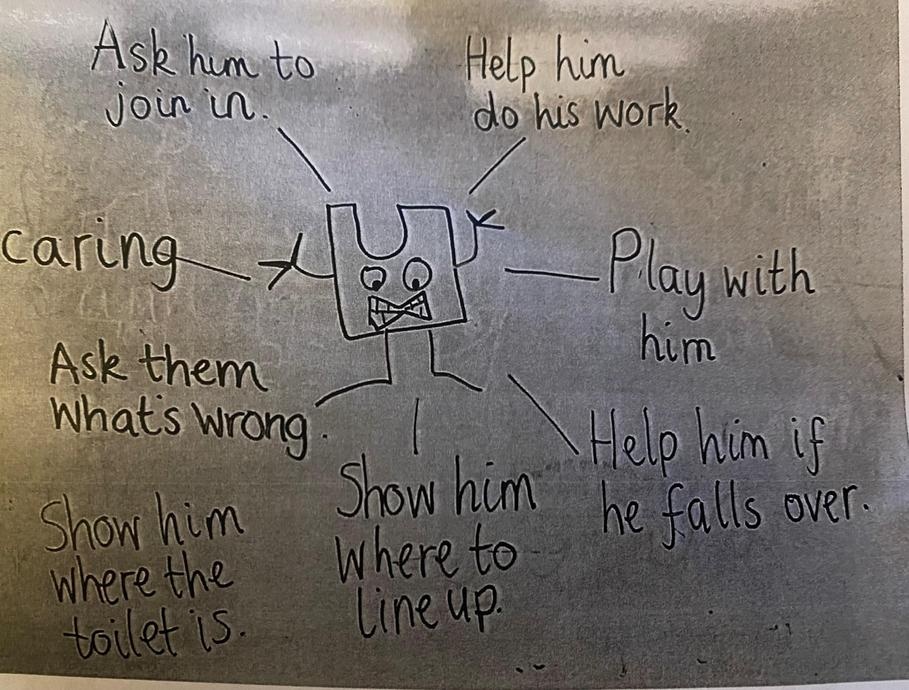 Ask him to
join in.
Help him
do his work.
caring
Play with
him
Ask them
What's wrong.
Help him if
he falls over.
Show him
where to
line up.
Show him
where the
toilet is.